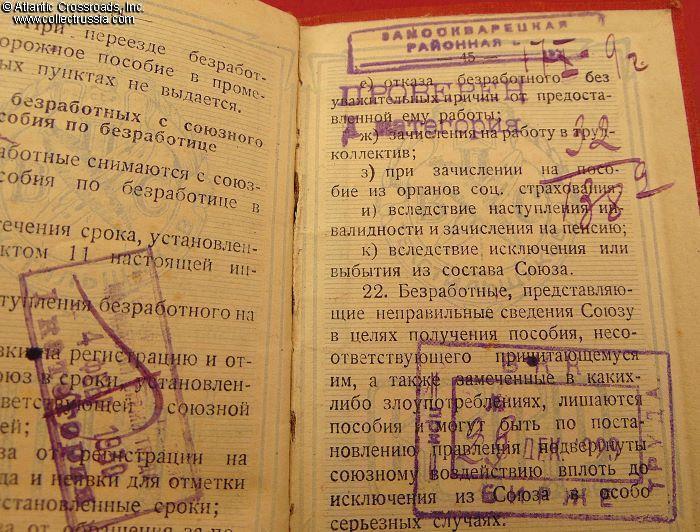 © Atlantic Crossroads, Inc.
www.collectrussia.com
При переезде безработ-
орожное пособие в проме-
ых пунктах не выдается.
безработных с союзного
особия по безработице
аботные снимаются с союз-
особия по безработице в
течения срока, установлен-
нктом 11 настоящей ин-
ступления безработного на
вки на регистрацию и от-
оюз в сроки, установлен-
ответствующей союзной
ей;
ва от регистрации на
да и неявки для отметки
становленные сроки;
ва от обращения за по-
I КАТЕГОРИЯ
ЗАМОСКВАРЕЦКАЯ
РАЙОННАЯ
— 45 —
е) отказа безработного без
уважительных причин от предоста-
вленной ему работы;
ПРОВЕРЕН
I категория
ж) зачисления на работу в труд-
коллектив;
з) при зачислении на посо-
бие из органов соц. страхования;
и) вследствие наступления ин-
валидности и зачисления на пенсию;
к) вследствие исключения или
выбытия из состава Союза.
22. Безработные, представляю-
щие неправильные сведения Союзу
в целях получения пособия, несо-
ответствующего причитающемуся
им, а также замеченные в каких-
либо злоупотреблениях, лишаются
пособия и могут быть по поста-
новлению правления подвергнуты
союзному воздействию вплоть до
исключения из Союза в особо
серьезных случаях.
ТРУДА